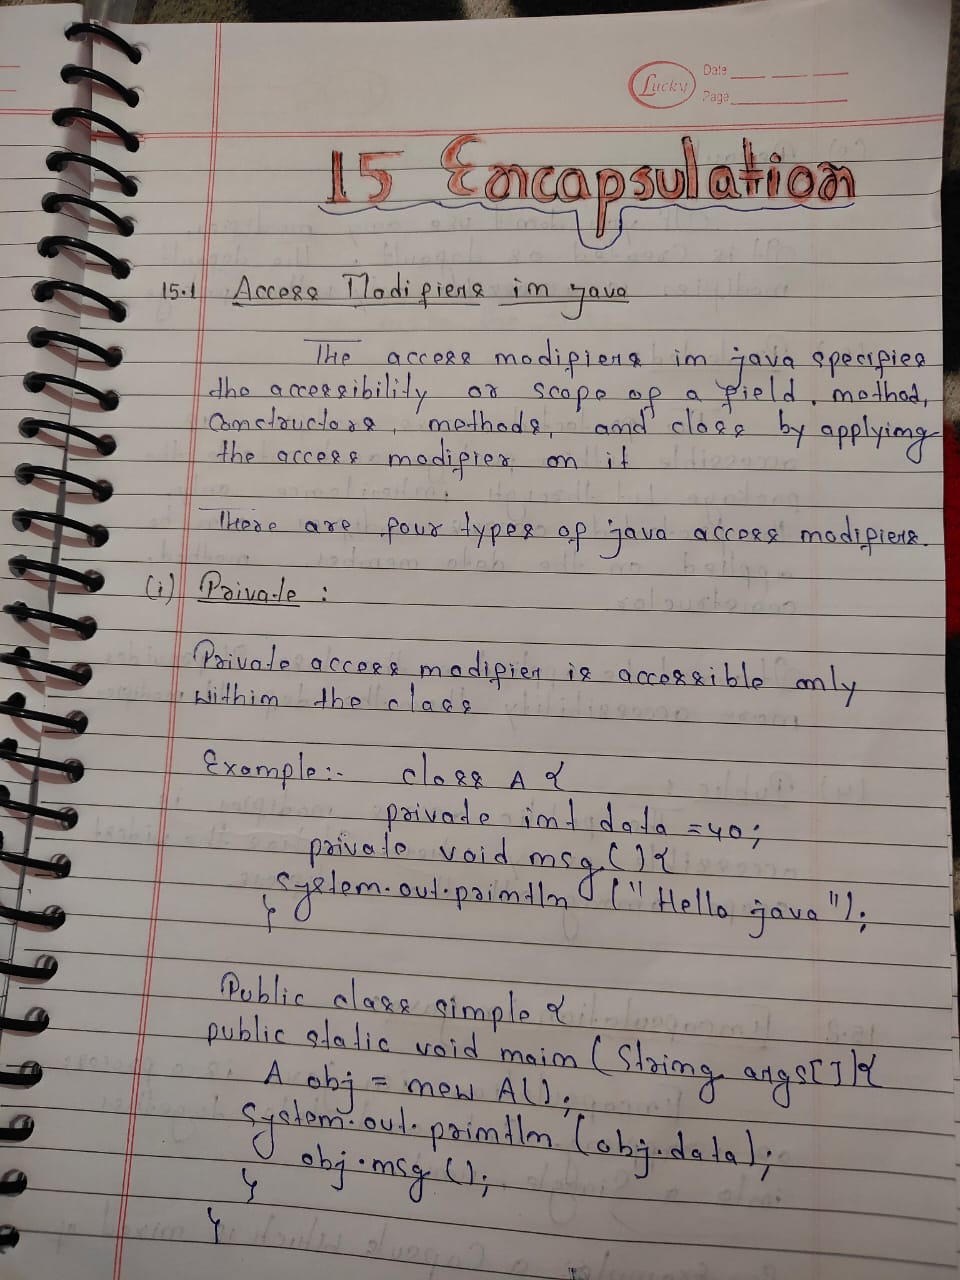 Lucky
Date
Page
15 Encapsulation
15.1 Access Modifiers in java
The access modifiers in java specifies
the accessibility or scope of a field, method,
constructors, methods, and class by applying
the access modifier on it
There are four types of java access modifiers.
(i) Private :
Private access modifier is accessible only
within the class
Example:- class A {
private int data =40;
private void msg(){
System.out.println ("Hello java");
}
Public class simple {
public static void main (String args[]){
A obj = new A();
System.out.println (obj.data);
obj.msg ();
}
}